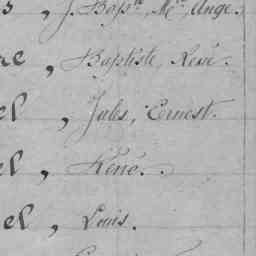 s, J. Bapte, Mie, Ange.
re, Baptiste, René.
el, Jules, Ernest.
el, René.
el, Louis.